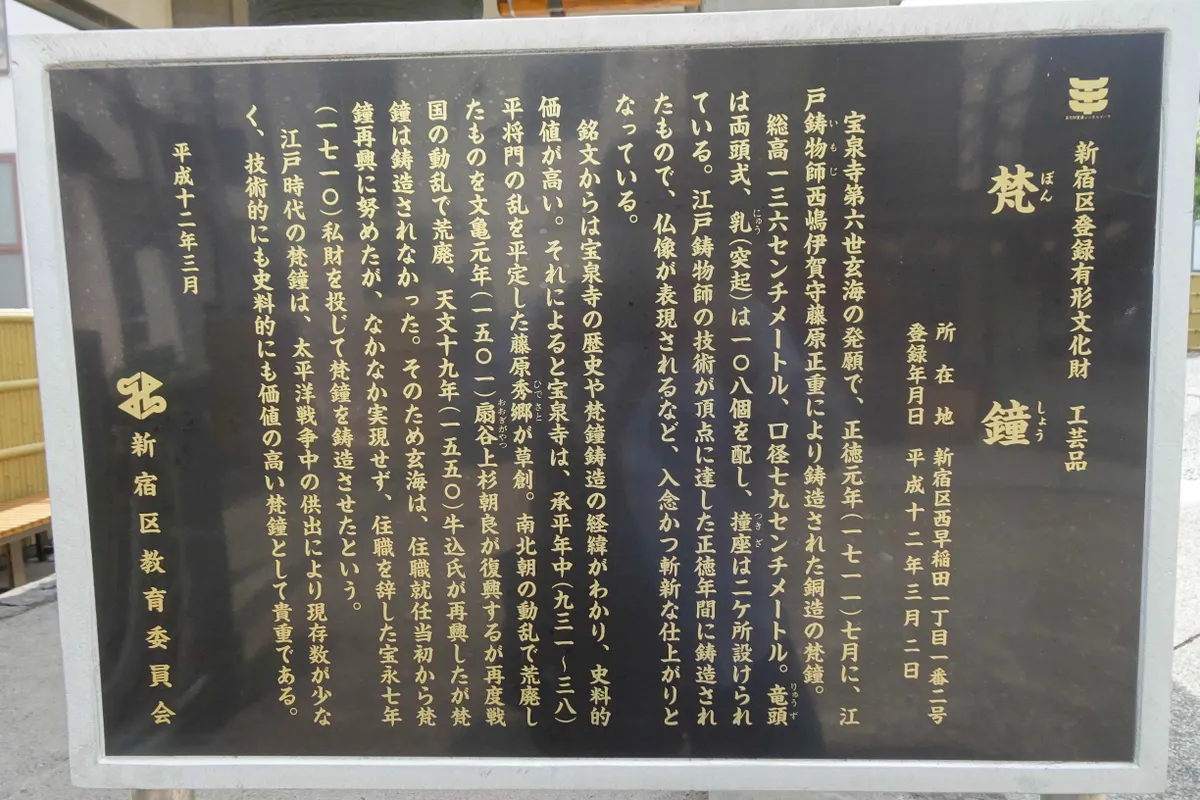 新宿区登録有形文化財 工芸品
梵鐘
ぼんしょう
所在地 新宿区西早稲田一丁目一番二号
登録年月日 平成十二年三月二日
宝泉寺第六世玄海の発願で、正徳元年(一七一一)七月に、江
戸鋳物師西嶋伊賀守藤原正重により鋳造された銅造の梵鐘。
いもじ
総高一三六センチメートル、口径七九センチメートル。竜頭
りゅうず
は両頭式、乳(突起)は一〇八個を配し、撞座は二ケ所設けられ
にゅう
つきざ
ている。江戸鋳物師の技術が頂点に達した正徳年間に鋳造され
たもので、仏像が表現されるなど、入念かつ斬新な仕上がりと
なっている。
銘文からは宝泉寺の歴史や梵鐘鋳造の経緯がわかり、史料的
価値が高い。それによると宝泉寺は、承平年中(九三一〜三八)
平将門の乱を平定した藤原秀郷が草創。南北朝の動乱で荒廃し
ひでさと
たものを文亀元年(一五〇一)扇谷上杉朝良が復興するが再度戦
おおぎがやつ
国の動乱で荒廃、天文十九年(一五五〇)牛込氏が再興したが梵
鐘は鋳造されなかった。そのため玄海は、住職就任当初から梵
鐘再興に努めたが、なかなか実現せず、住職を辞した宝永七年
(一七一〇)私財を投して梵鐘を鋳造させたという。
江戸時代の梵鐘は、太平洋戦争中の供出により現存数が少な
く、技術的にも史料的にも価値の高い梵鐘として貴重である。
平成十二年三月
新宿区教育委員会